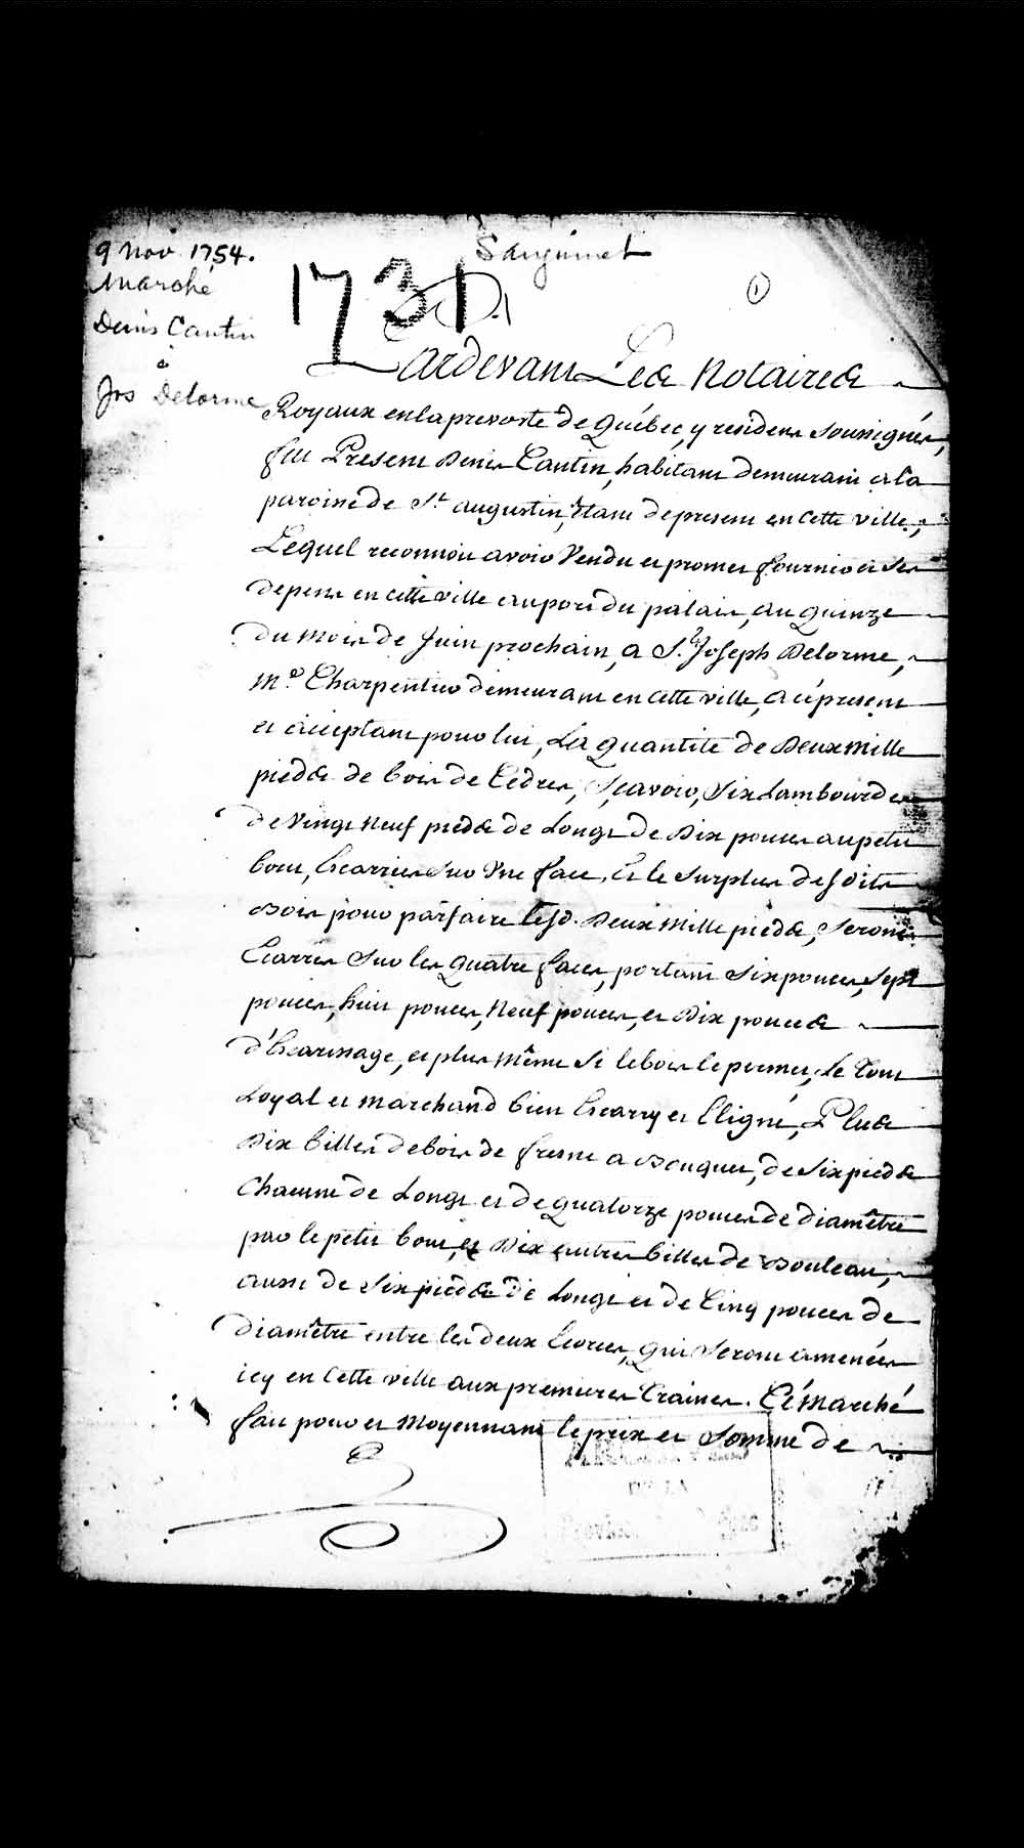 9 Nov 1754.
Sanguinet
Marché
1731
1
Denis Cantin
à
Jos Delorme
Pardevant Les Notaires
Royaux en la prevosté de Québec, y residens soussignés,
fut Present Denis Cantin, habitant demeurant a la
paroisse de St. augustin, Etant de present en cette ville,
Lequel reconnoit avoir Vendu et promet fournir à ses
depens en cette ville au port du palais, au Quinze
du mois de Juin prochain, a Sr. Joseph Delorme,
Me. Charpentier demeurant en cette ville, a ce present
et acceptant pour lui, La Quantité de Deux mille
pieds de bois de Cédres, Sçavoir, Six Lambourdes
de Vingt Neuf pieds de Longs de Dix pouces au petit
bout, Ecarries sur Une face, Et le surplus desdits
Bois pour parfaire lesd. Deux mille pieds, Seront
Ecarrés sur les Quatre faces, portant Six pouces, Sept
pouces, huit pouces, Neuf pouces, et Dix pouces
d'Ecarissage, et plus même si le bois le permet, Le tout
Loyal et marchand bien Ecarry et Eligné, Plus
Dix billes de bois de fresne a Bouquer, de Six pieds
Chacune de Longs et de quatorze pouces de diamêtre
par le petit bout, et Dix autres billes de Bouleau,
aussi de Six pieds de Longs et de Cinq pouces de
diamêtre entre les deux Ecorces, Qui seront amenées
icy en Cette ville aux premieres Traines. Ce Marché
fait pour et Moyennant le prix et Somme de